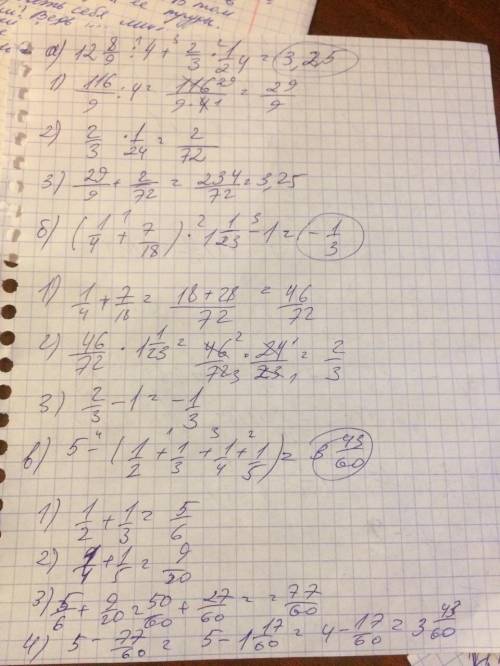 ить себя
не
В том
Ведь
а) 12 8/9 : 4 + 2/3 · 1/24 = 3,25
1) 116/9 : 4 = 116 29/9·4 1 = 29/9
2) 2/3 · 1/24 = 2/72
3) 29/9 + 2/72 = 234/72 = 3,25
б) (1/4 + 7/18) · 1 1/23 - 1 = -1/3
1) 1/4 + 7/18 = 18+28/72 = 46/72
2) 46/72 · 1 1/23 = 46 2/72 3 · 24 1/23 1 = 2/3
3) 2/3 - 1 = -1/3
в) 5 - (1/2 + 1/3 + 1/4 + 1/5) = 3 43/60
1) 1/2 + 1/3 = 5/6
2) 1/4 + 1/5 = 9/20
3) 5/6 + 9/20 = 50/60 + 27/60 = = 77/60
4) 5 - 77/60 = 5 - 1 17/60 = 4 - 17/60 = 3 43/60